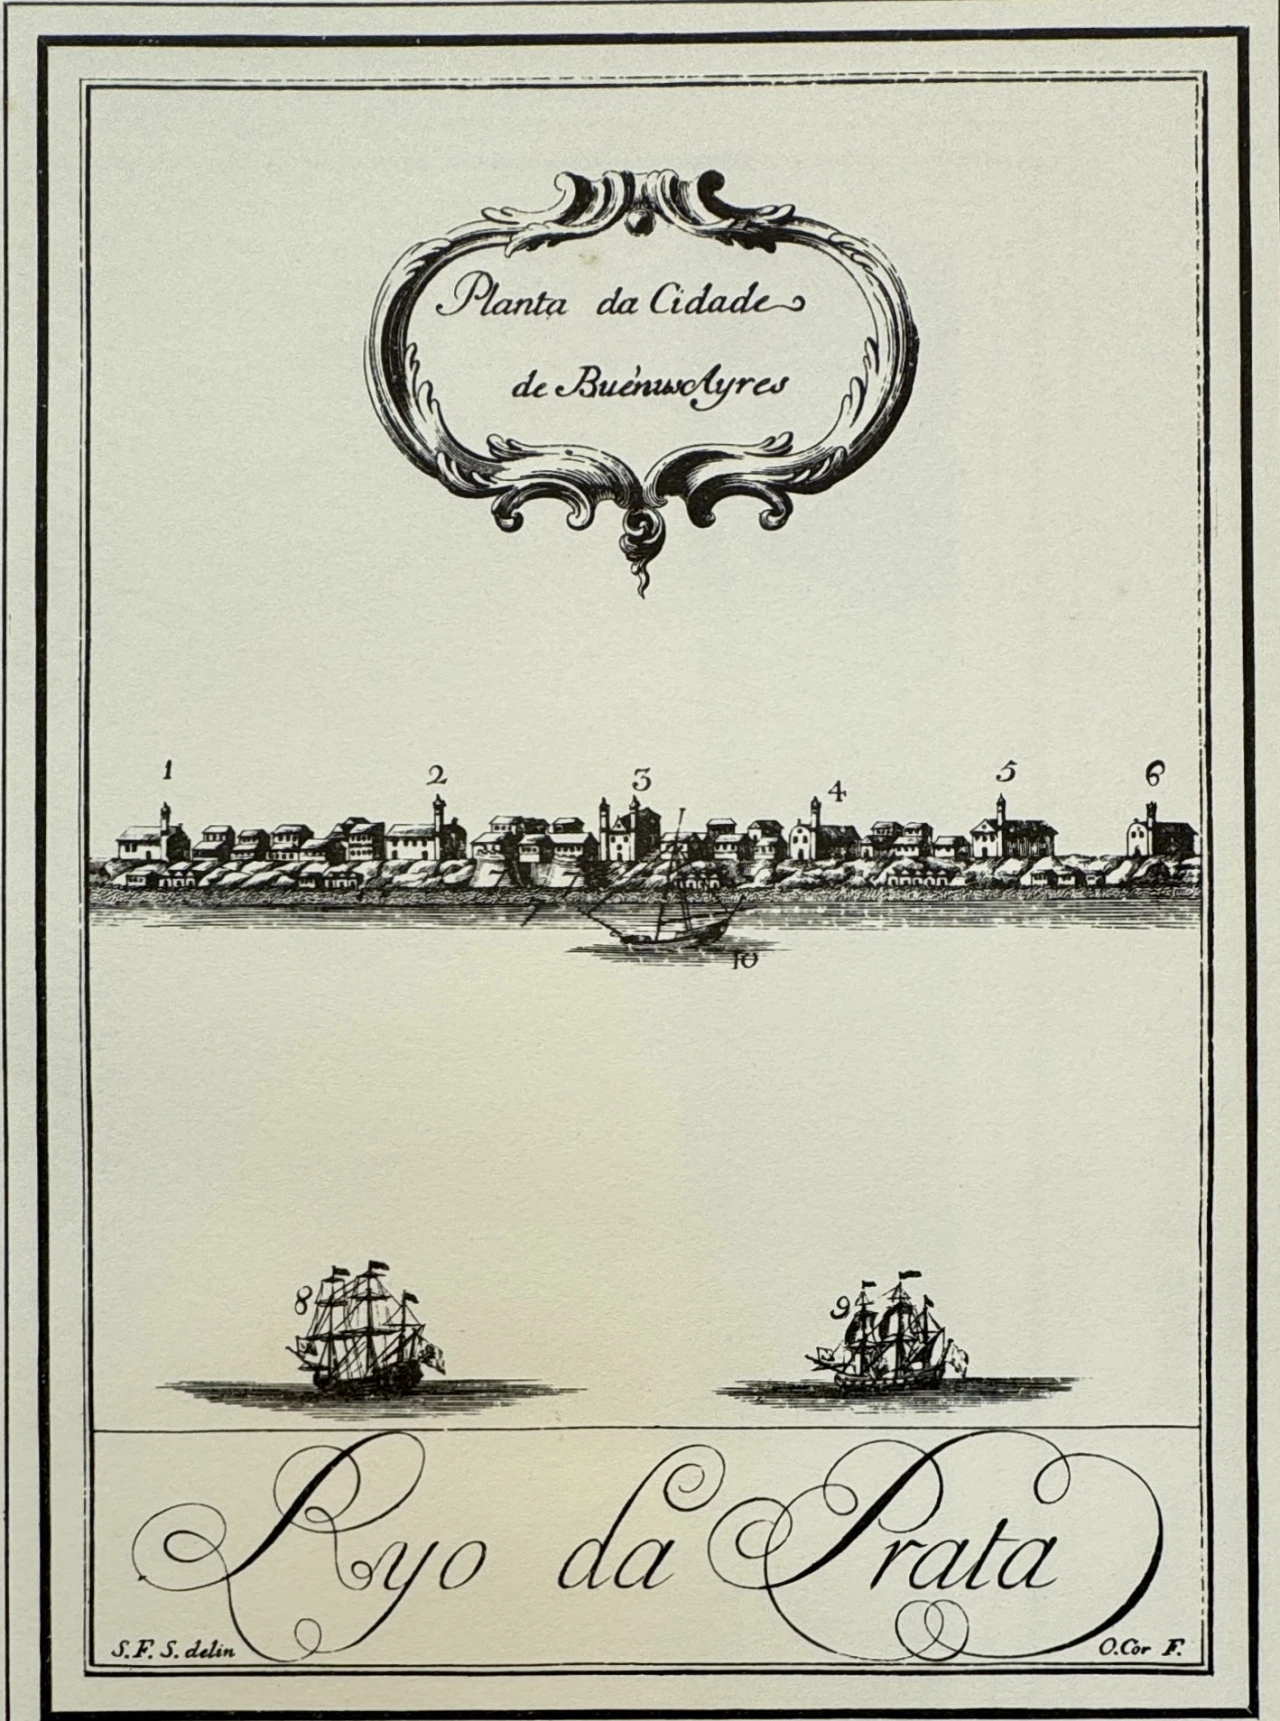 Planta da Cidade
de Buénus Ayres
1 2 3 4 5 6
10
8 9
Ryo da Prata
S. F. S. delin
O. Cor F.